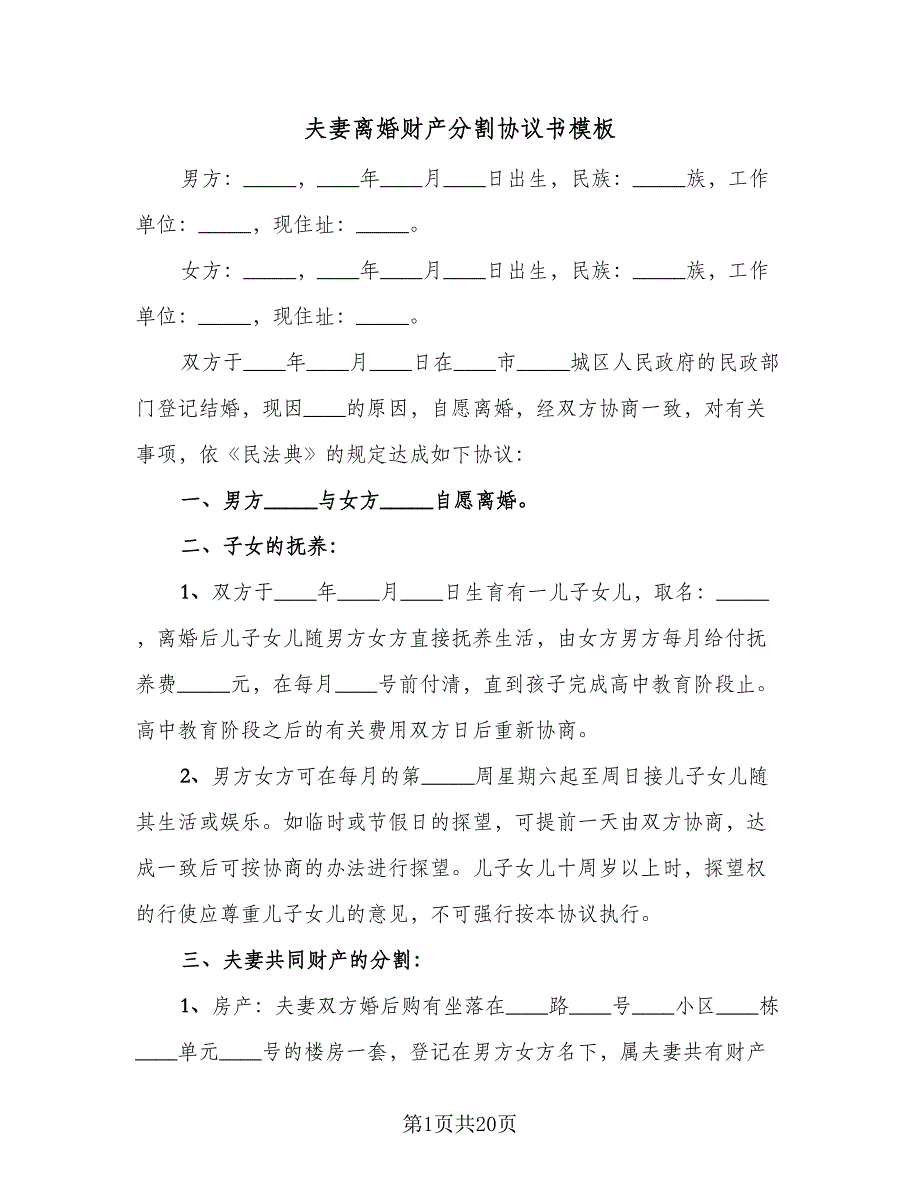 夫妻离婚财产分割协议书模板
男方：_____，____年____月____日出生，民族：_____族，工作
单位：_____，现住址：_____。
女方：_____，____年____月____日出生，民族：_____族，工作
单位：_____，现住址：_____。
双方于____年____月____日在____市_____城区人民政府的民政部
门登记结婚，现因____的原因，自愿离婚，经双方协商一致，对有关
事项，依《民法典》的规定达成如下协议：
一、男方_____与女方_____自愿离婚。
二、子女的抚养：
1、双方于____年____月____日生育有一儿子女儿，取名：_____
，离婚后儿子女儿随男方女方直接抚养生活，由女方男方每月给付抚
养费_____元，在每月____号前付清，直到孩子完成高中教育阶段止。
高中教育阶段之后的有关费用双方日后重新协商。
2、男方女方可在每月的第_____周星期六起至周日接儿子女儿随
其生活或娱乐。如临时或节假日的探望，可提前一天由双方协商，达
成一致后可按协商的办法进行探望。儿子女儿十周岁以上时，探望权
的行使应尊重儿子女儿的意见，不可强行按本协议执行。
三、夫妻共同财产的分割：
1、房产：夫妻双方婚后购有坐落在____路____号____小区____栋
____单元____号的楼房一套，登记在男方女方名下，属夫妻共有财产
第1页共20页